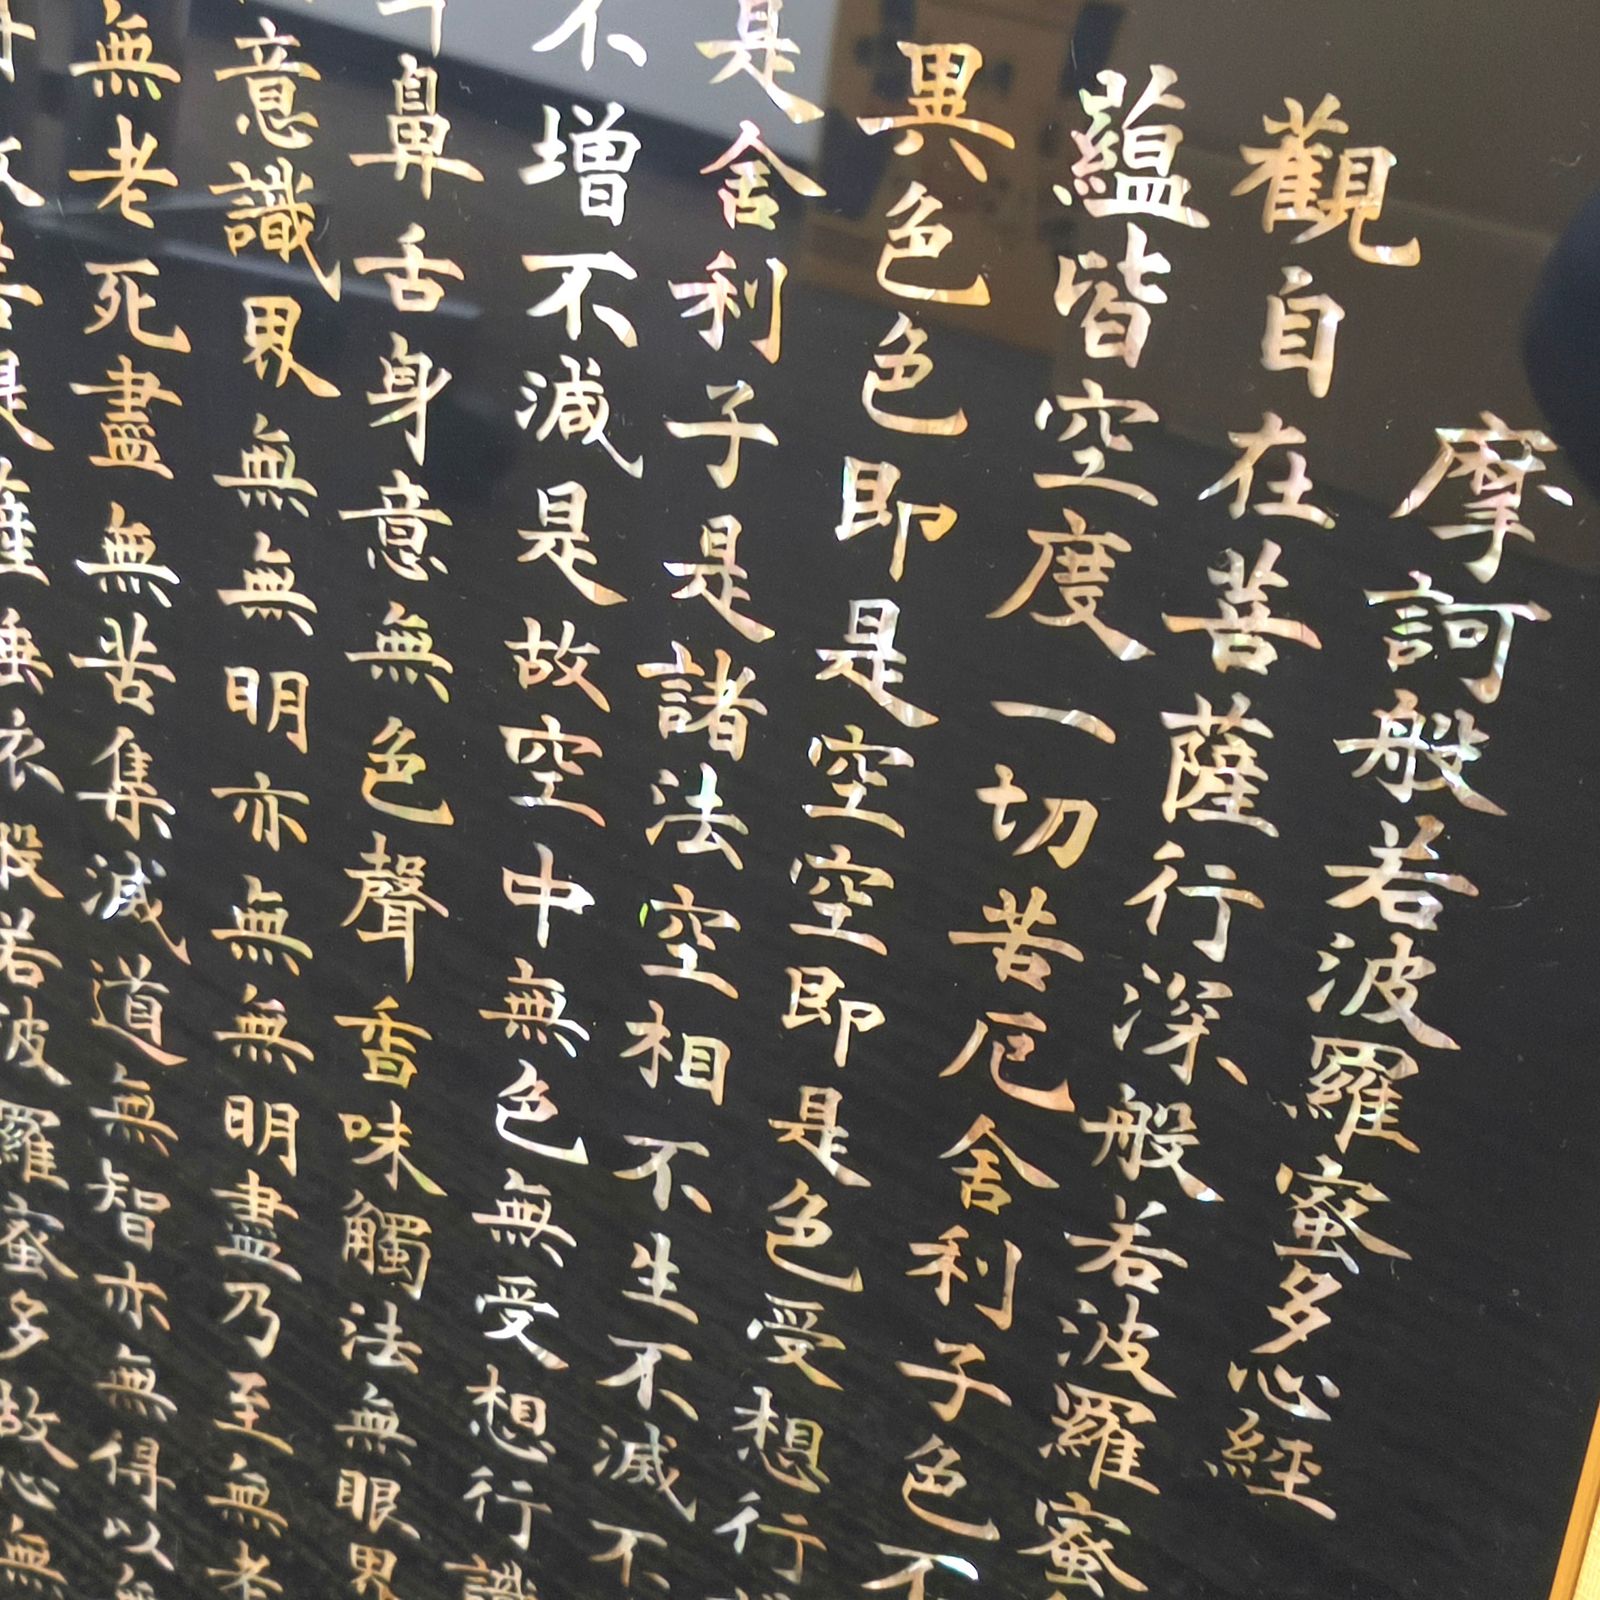 摩訶般若波羅蜜多心経
觀自在菩薩行深般若波羅蜜
蘊皆空度一切苦厄舍利子色不
異色色即是空空即是色受想行
是舍利子是諸法空相不生不滅不
不増不減是故空中無色無受想行識
鼻舌身意無色聲香味觸法無眼界
意識界無無明亦無無明盡乃至無老
無老死盡無苦集滅道無智亦無得以無
故菩提薩埵依般若波羅蜜多故心無